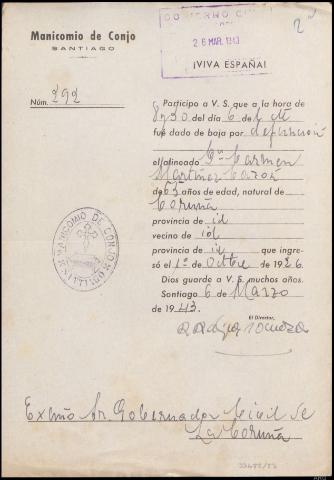 Manicomio de Conjo
SANTIAGO
GOBIERNO CIVIL
26 MAR. 1943
2
¡VIVA ESPAÑA!
Núm. 292
Participo a V. S. que a la hora de
8,30 del día 6 de
fué dado de baja por defunción
el alienado Dª Carmen
Martínez
de 65 años de edad, natural de
Coruña
provincia de id
vecino de id
provincia de id que ingre-
só el 1º de Octbre de 1926.
Dios guarde a V. S. muchos años.
Santiago 6 de Marzo
de 1943.
El Director,
MANICOMIO DE CONJO
SANTIAGO
Exmo Sr. Gobernador Civil de
La Coruña